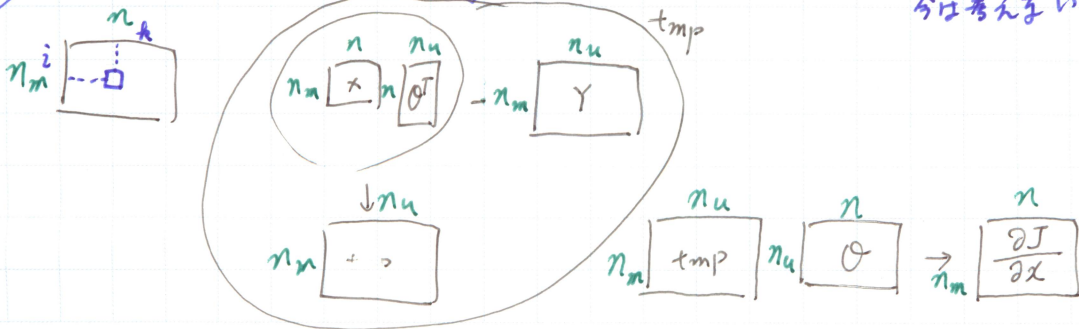 今は考えない
n
k
i
n_m
tmp
n n_u
n_m X n θ^T - n_m Y
n_u
↓ n_u
n_m
n_u n n
n_m tmp n_u θ → n_m ∂J/∂x